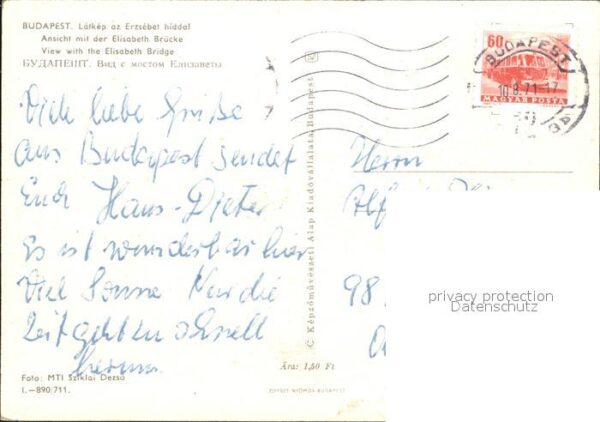 BUDAPEST. Látkép az Erzsébet híddal
Ansicht mit der Elisabeth Brücke
View with the Elisabeth Bridge
БУДАПЕШТ. Вид с мостом Елизаветы
Viele liebe Grüße
aus Budapest sendet
Euch Hans-Dieter
Es ist wunderbar hier
Viel Sonne Nur die
Zeit geht zu schnell
herum.
Foto: MTI Sziklai Dezső
I.-890/711.
C Képzőművészeti Alap Kiadóvállalata, Budapest
Ára: 1,50 Ft
OFFSET-NYOMDA BUDAPEST
60f
MAGYAR POSTA
BUDAPEST
10.8.71-17
Herrn
98
privacy protection
Datenschutz